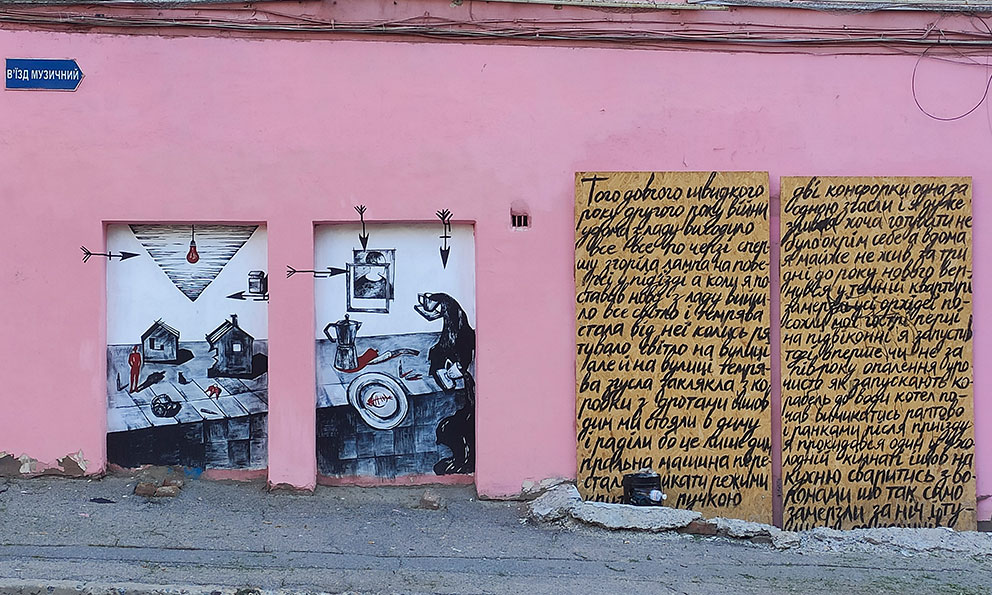 В'ЇЗД МУЗИЧНИЙ
Того довгого швидкого
року другого року війни
удома з ладу виходило
все все по черзі спер-
шу згоріла лампа на пове-
рсі у підїзді а коли я по
ставив нову з ладу вийш-
ло все світло і темрява
стала від неї колись ря
тувало світло на вулиці
але й на вулиці темря-
ва зусла заклякла з ко
робки з дротами пішов
дим ми стояли в диму
і раділи бо це лише дим
пральна машина пере-
стала микати режими
ручкою
дві конфорки одна за
одною згасли і я дуже
хоча готувати не
було окрім себе а вдома
я майже не жив за три
дні до року нового вер-
нувся у темній квартирі
замерзла усі орхідеї по-
сохли мов гострі перці
на підвіконні я запустив
тоді вперше чи не за
пів року опалення уро-
чисто як запускають ко-
рабель до води котел по-
чав вимикатись раптово
і ранками після приїзду
я прокидався один у холо-
лодній кімнаті і шов на
кухню сваритись з во-
ронами що так само
замерзли за ніч і ту-